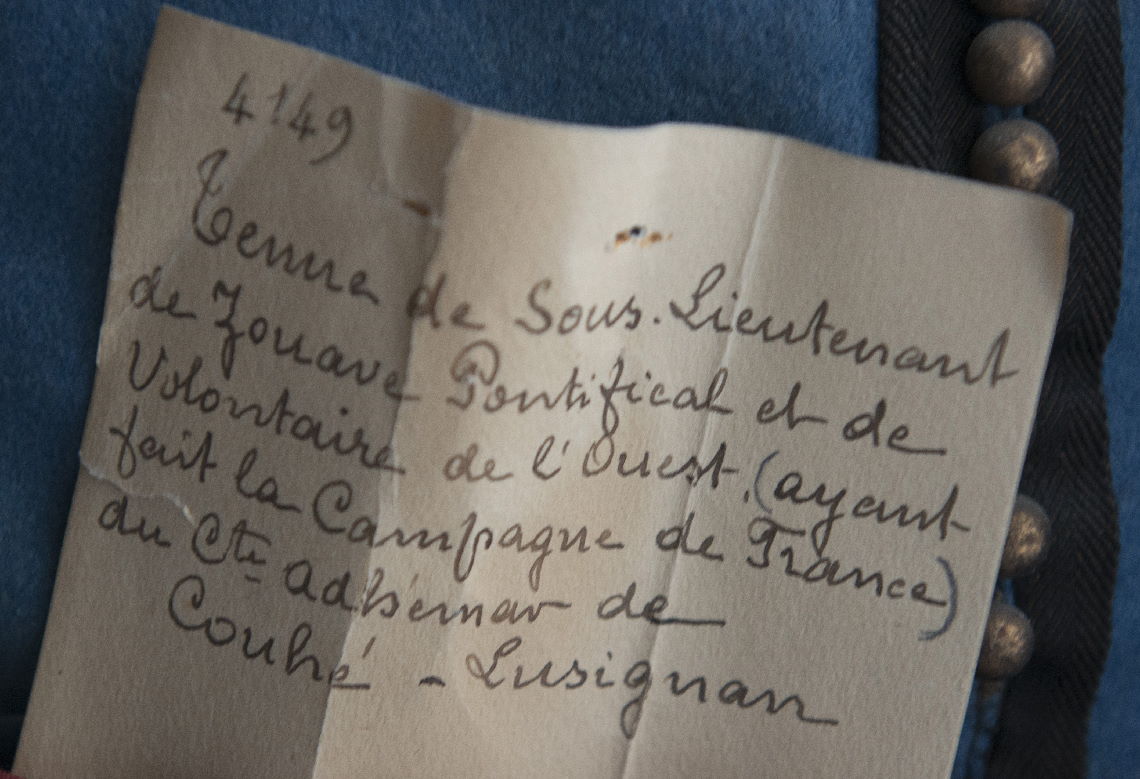 4149
Tenue de Sous. Lieutenant
de Zouave Pontifical et de
Volontaire de l'Ouest. (ayant
fait la Campagne de France)
du Cte Adhémar de
Couhé - Lusignan